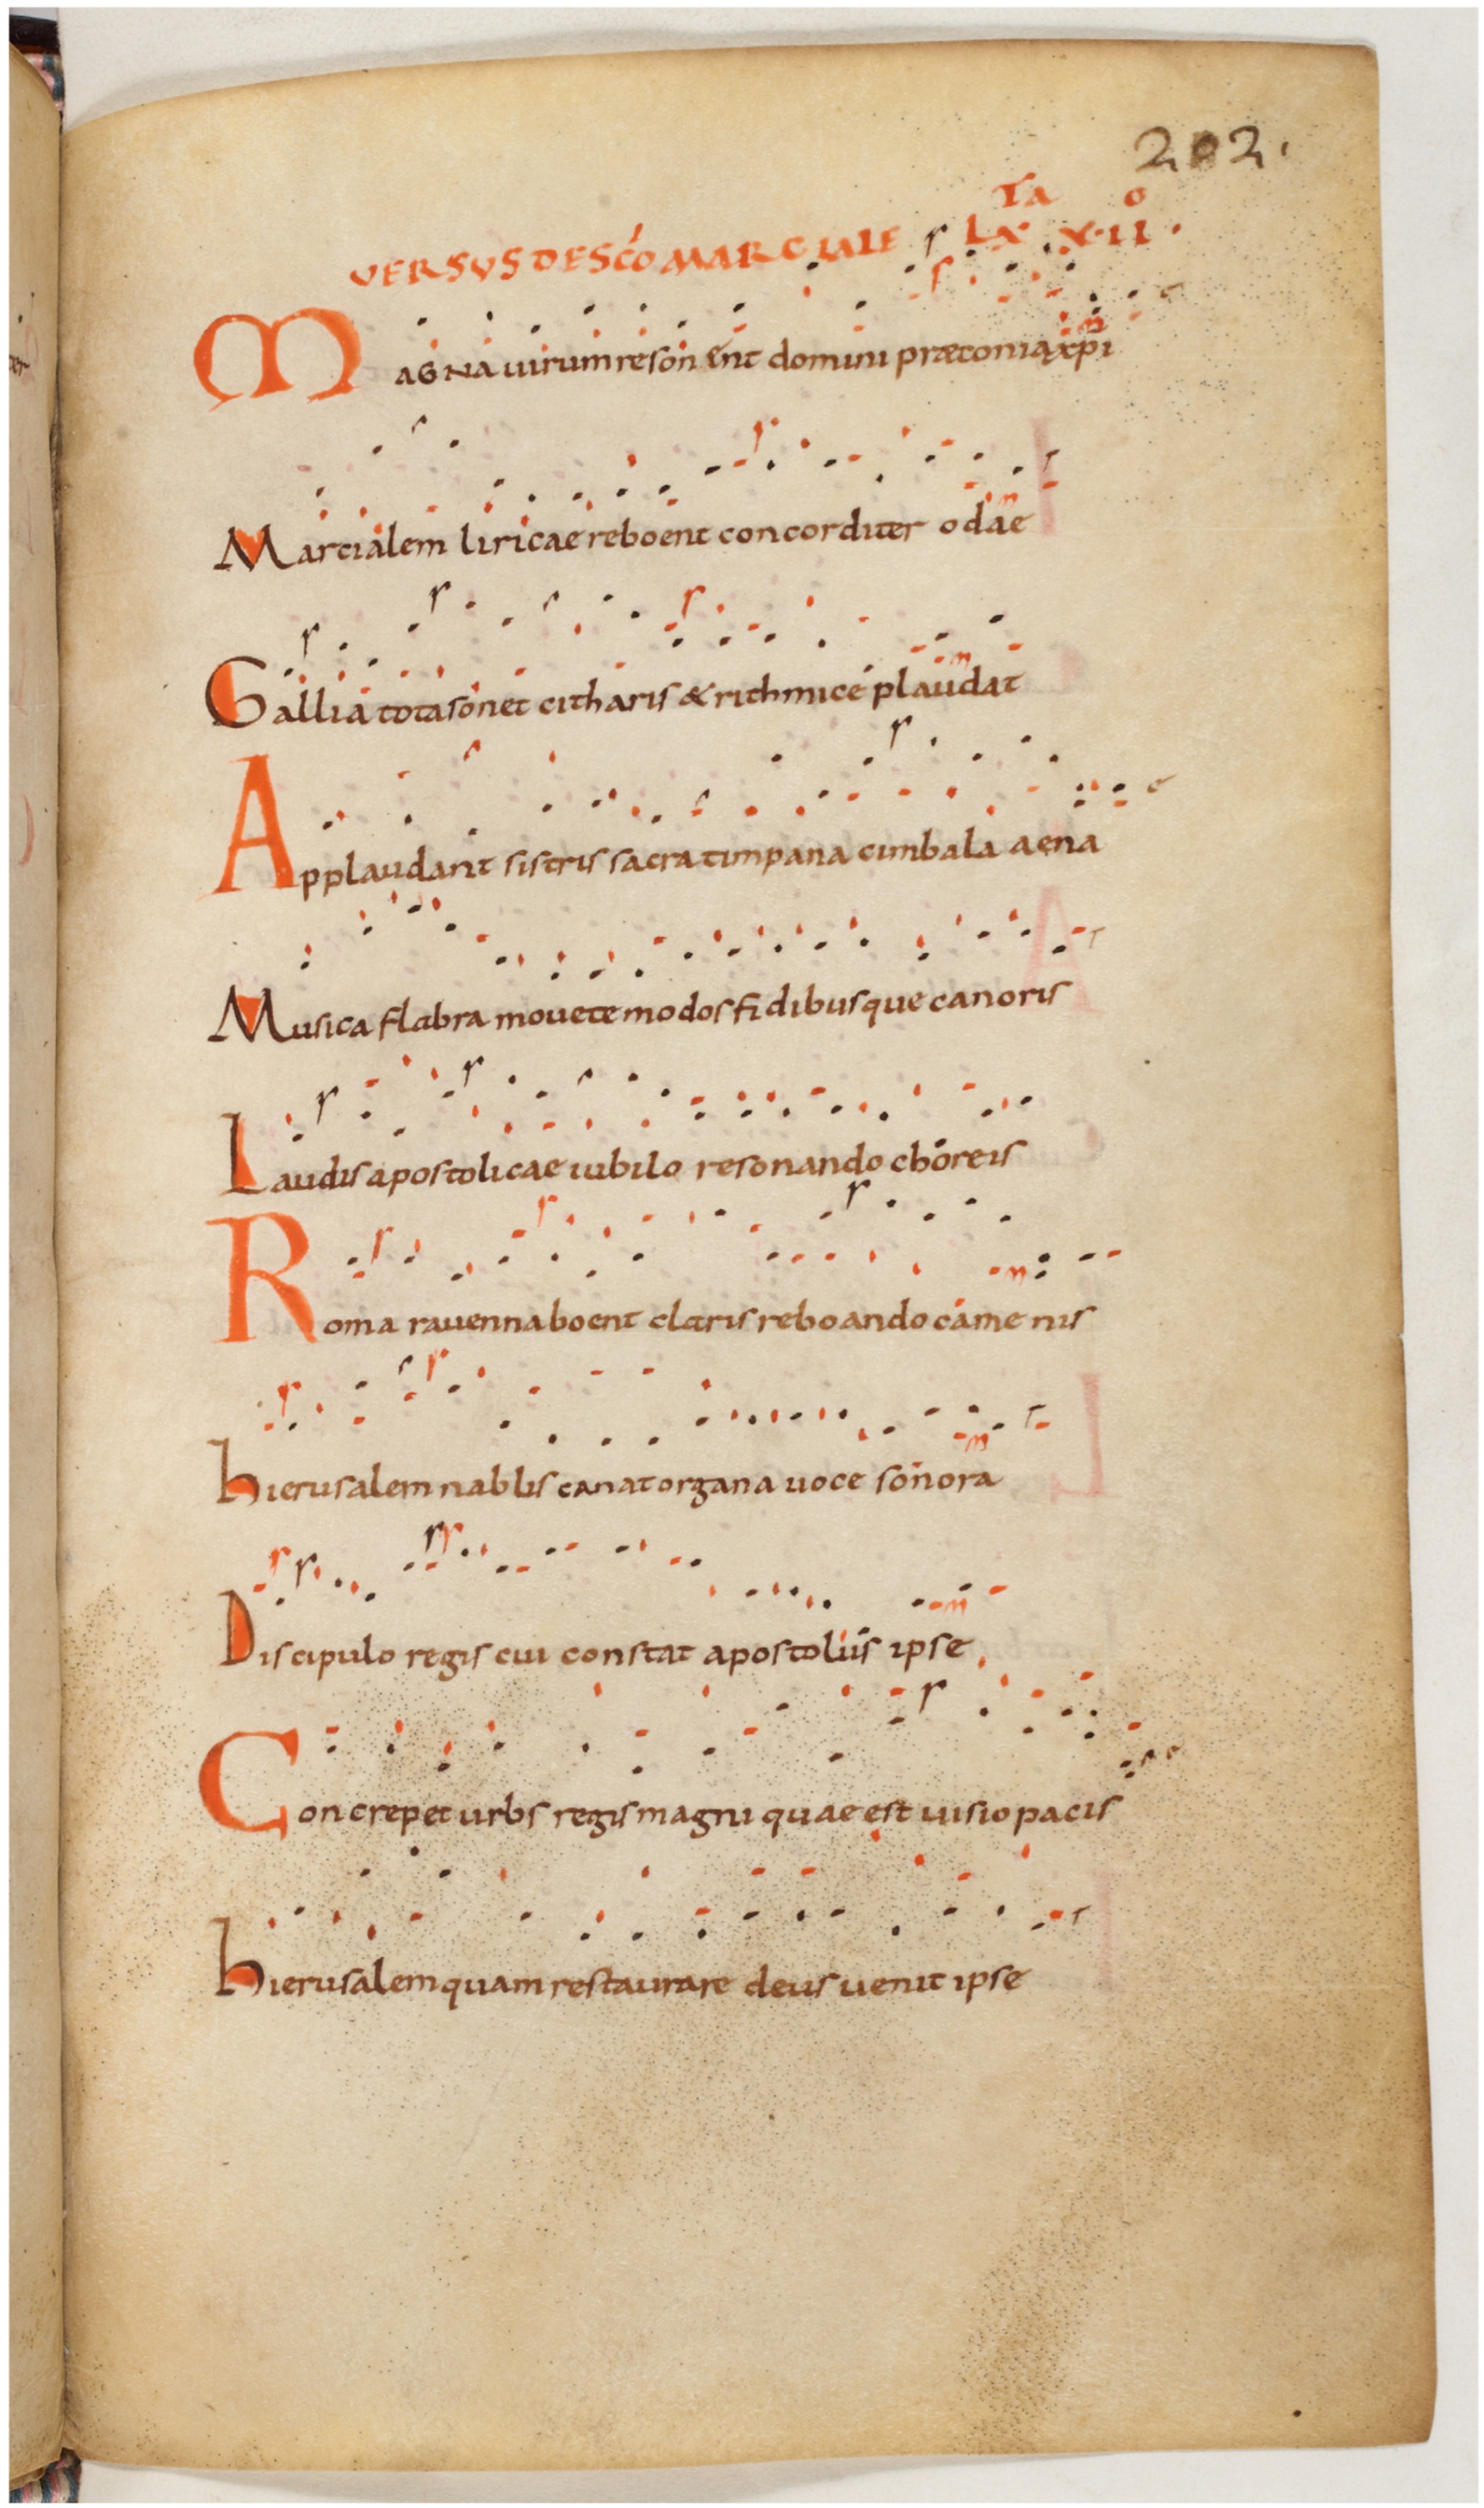 202.
TA O
VERSUS DE SCO MARCIALE LX XII.
MAGNA uirum resonent domini præconia xpi
Martialem liricae reboent concorditer odae
Gallia tota sonet citharis & rithmice plaudat
Applaudant sistris sacra timpana cimbala aena
Musica flabra mouete modos fidibusque canoris
Laudis apostolicae iubilo resonando choreis
Roma rauenna boent claris reboando camenis
hierusalem nablis canat organa uoce sonora
Discipulo regis cui constat apostolus ipse
Concrepet urbs regis magni quae est uisio pacis
hierusalem quam restaurare deus uenit ipse